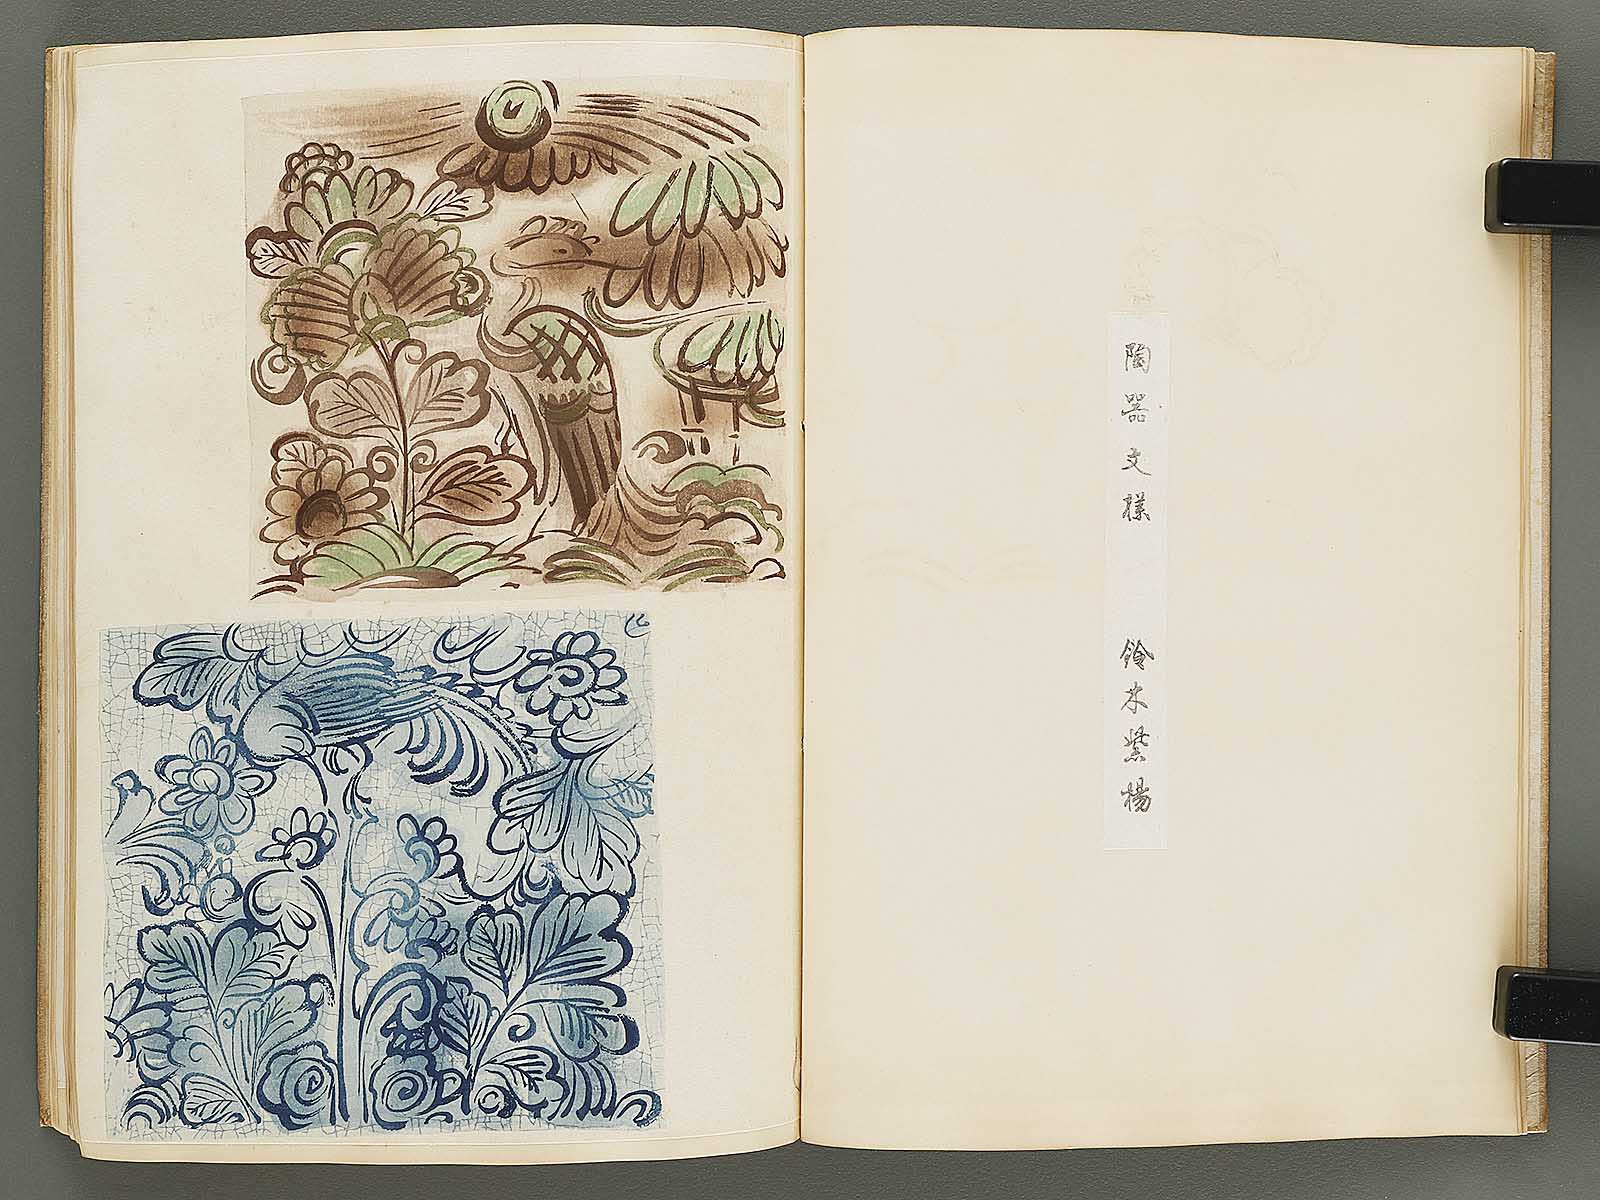 陶器文様 鈴木紫楊